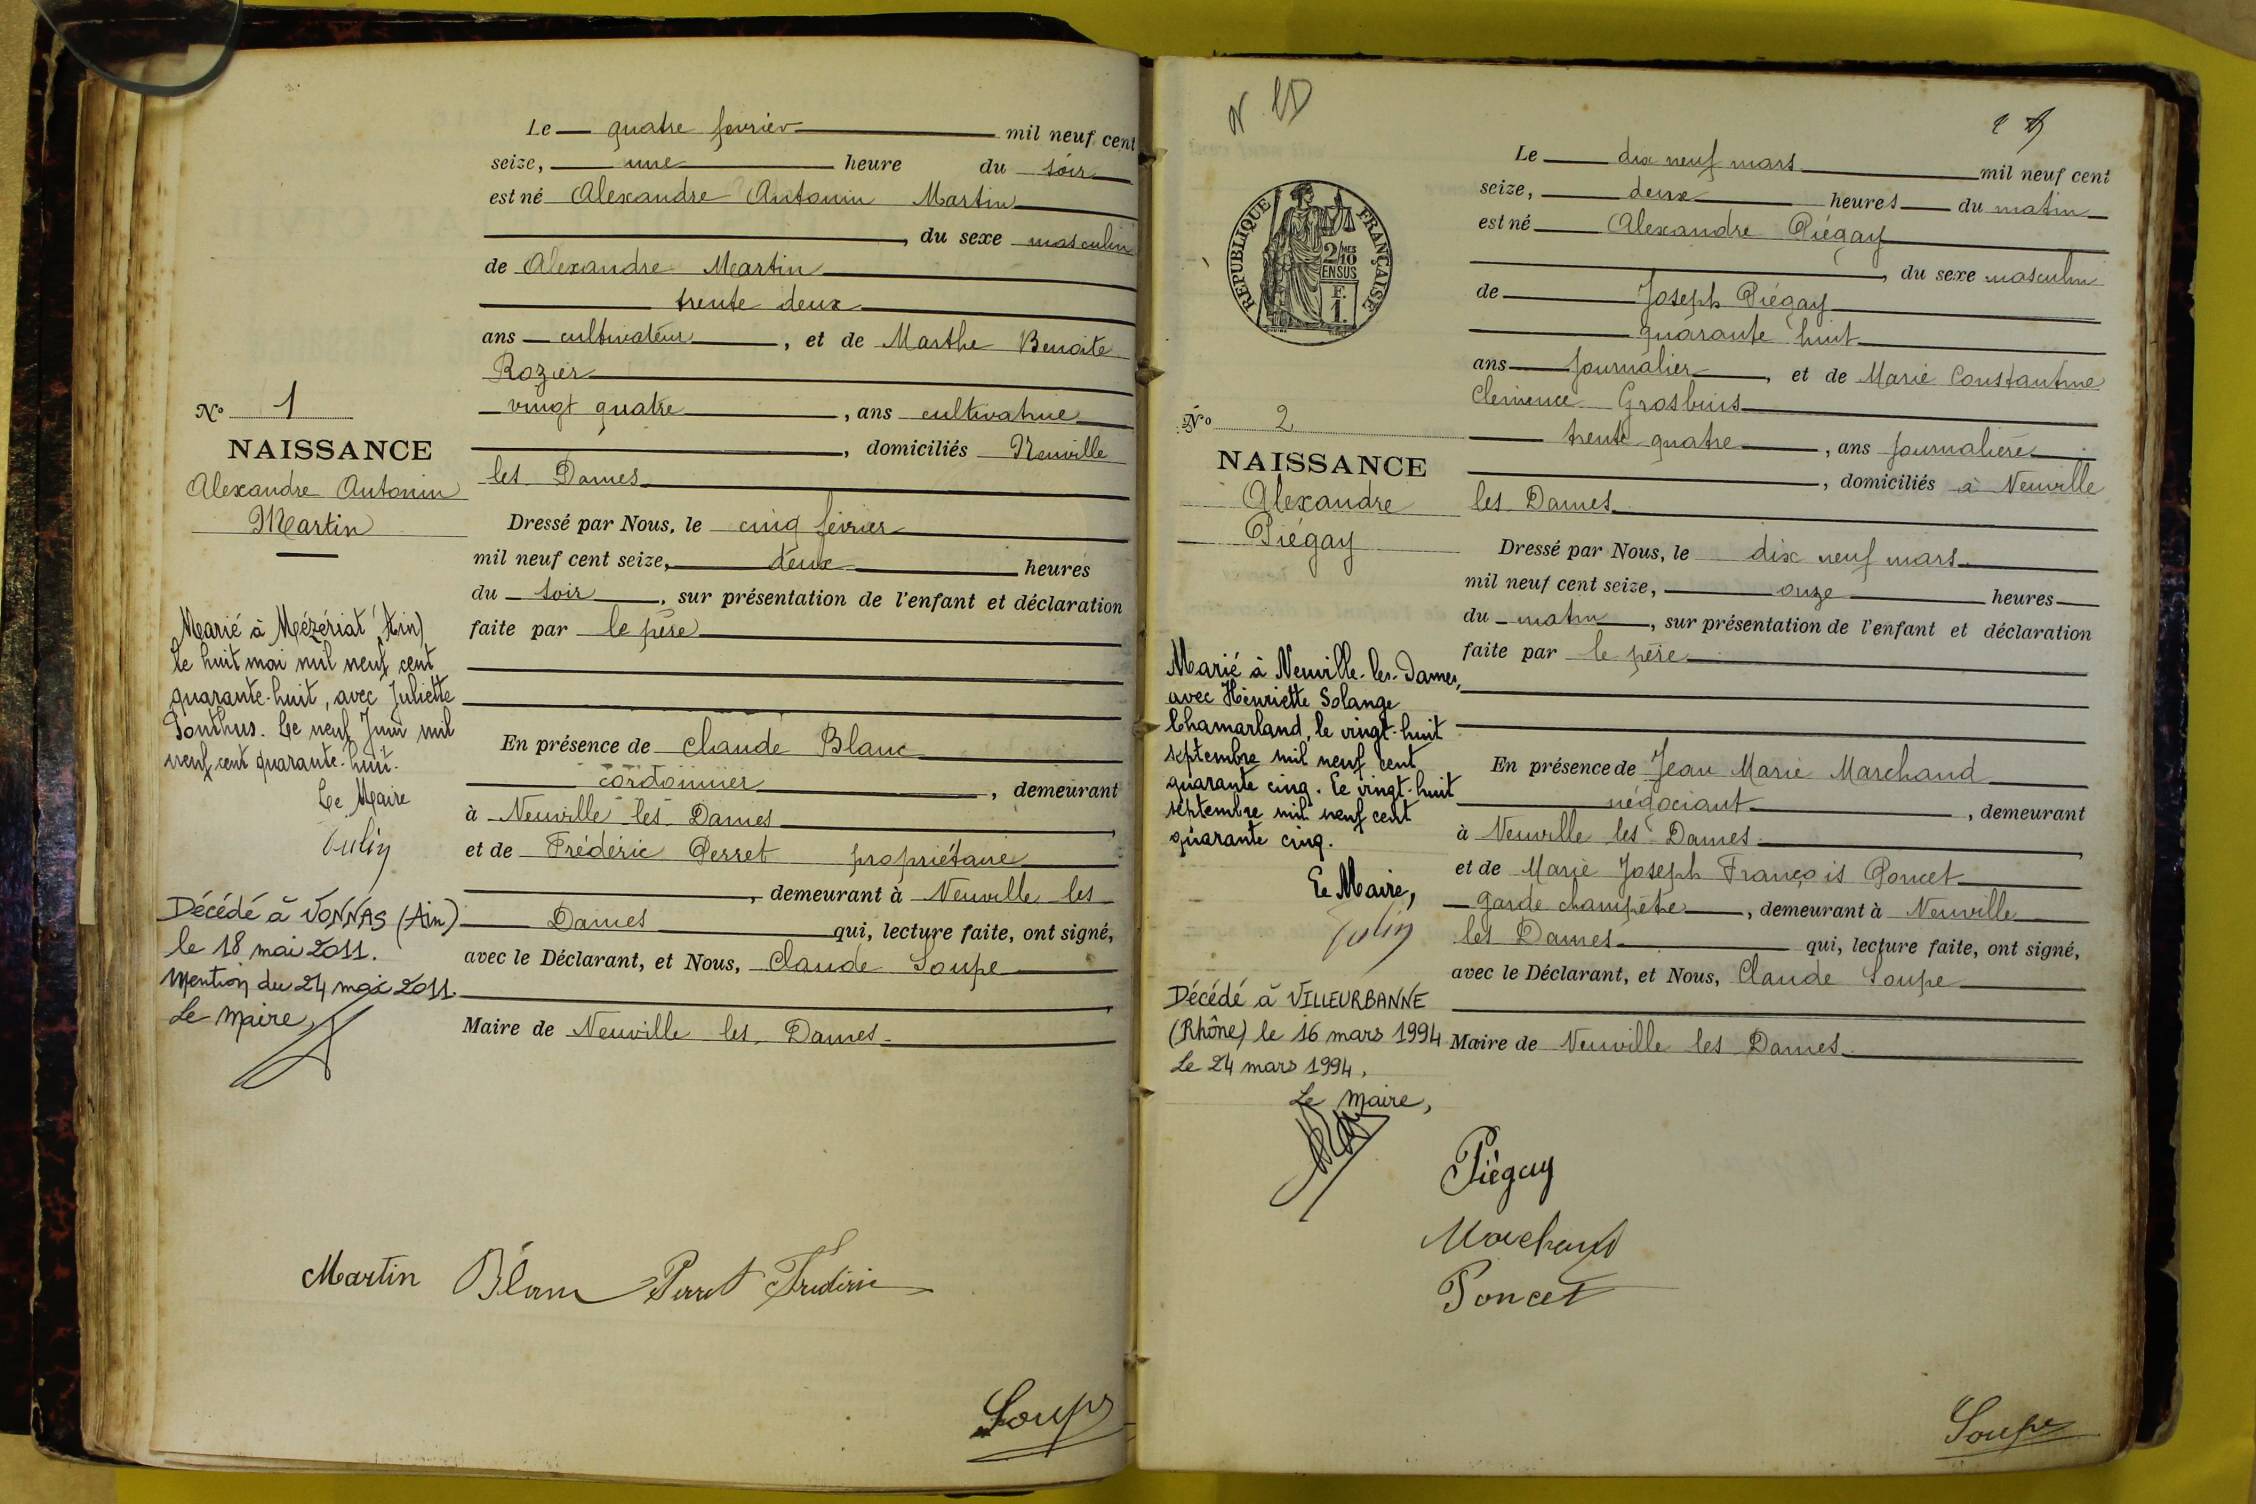 Le quatre fevrier mil neuf cent
seize, une heure du soir
est né Alexandre Antonin Martin
, du sexe masculin
de Alexandre Martin
trente deux
ans cultivateur , et de Marthe Benoite
Rozier
vingt quatre , ans cultivatrice
, domiciliés Neuville
les Dames
Dressé par Nous, le cinq février
mil neuf cent seize, deux heures
du soir , sur présentation de l'enfant et déclaration
faite par le père
En présence de Claude Blanc
cordonnier , demeurant
à Neuville les Dames ,
et de Frédéric Perret propriétaire
, demeurant à Neuville les
Dames qui, lecture faite, ont signé,
avec le Déclarant, et Nous, Claude Soupe
,
Maire de Neuville les Dames
N° 1
NAISSANCE
Alexandre Antonin
Martin
Marié à Mézériat (Ain)
le huit mai mil neuf cent
quarante-huit, avec Juliette
Ponthus. Le neuf Juin mil
neuf cent quarante-huit.
Le Maire
Décédé à VONNAS (Ain)
le 18 mai 2011.
Mention du 24 mai 2011.
Le Maire,
Martin Blanc Perret Frédéric
Soupe
N
REPUBLIQUE FRANÇAISE
2/10 MES
EN SUS
F.
1.
Le dix neuf mars mil neuf cent
seize, deux heures du matin
est né Alexandre Piégay
, du sexe masculin
de Joseph Piégay
quarante huit
ans journalier , et de Marie Constantine
Clémence Grosbuis
trente quatre , ans journalière
, domiciliés à Neuville
les Dames
Dressé par Nous, le dix neuf mars
mil neuf cent seize, onze heures
du matin , sur présentation de l'enfant et déclaration
faite par le père
En présence de Jean Marie Marchand
négociant , demeurant
à Neuville les Dames ,
et de Marie Joseph François Poncet
garde champêtre , demeurant à Neuville
les Dames qui, lecture faite, ont signé,
avec le Déclarant, et Nous, Claude Soupe
Maire de Neuville les Dames
N° 2
NAISSANCE
Alexandre
Piégay
Marié à Neuville-les-Dames,
avec Henriette Solange
Chamarland, le vingt-huit
septembre mil neuf cent
quarante cinq. Le vingt-huit
septembre mil neuf cent
quarante cinq.
Le Maire,
Décédé à VILLEURBANNE
(Rhône) le 16 mars 1994
Le 24 mars 1994.
Le Maire,
Piégay
Marchand
Poncet
Soupe